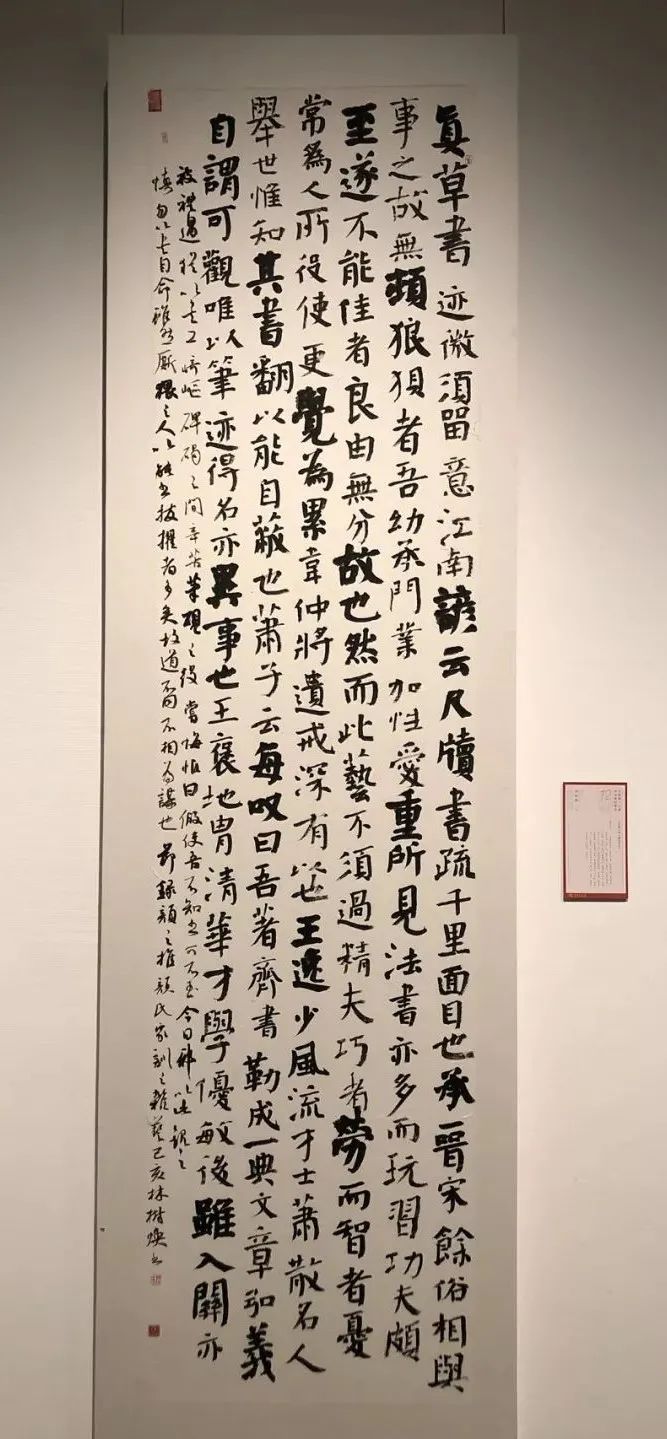 真草書迹微須留意江南諺云尺牘書疏千里面目也承晉宋餘俗相與
事之故無頓狼狽者吾幼承門業加性愛重所見法書亦多而玩習功夫頗
至遂不能佳者良由無分故也然而此藝不須過精夫巧者勞而智者憂
常爲人所役使更覺為累韋仲將遺戒深有以也王逸少風流才士蕭散名人
舉世惟知其書翻以能自蔽也蕭子云每叹曰吾著齊書勒成一典文章弘義
自謂可觀唯以筆迹得名亦異事也王褒地胄清華才學優敏後雖入關亦
被禮遇猶以書工崎嶇碑碣之間辛苦筆硯之役嘗悔恨曰假使吾不知書可不至今日邪以此觀之
慎勿以書自命雖然厮猥之人以能書拔擢者多矣故道不同不相為謀也節錄顏之推顏氏家訓之雜藝己亥林楷煥書